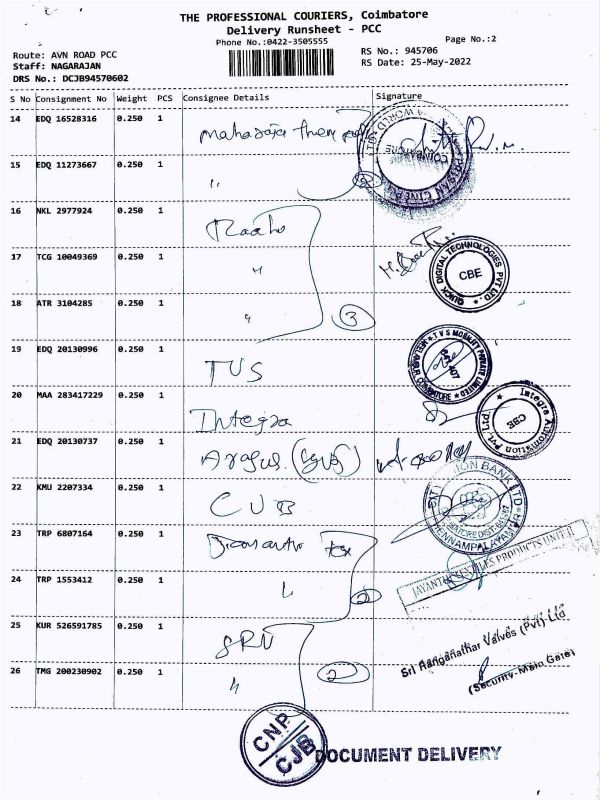 THE PROFESSIONAL COURIERS, Coimbatore
Delivery Runsheet - PCC
Phone No.:0422-3505555
Page No.:2
Route: AVN ROAD PCC
RS No.: 945706
Staff: NAGARAJAN
RS Date: 25-May-2022
DRS No.: DCJB94570602
S No Consignment No Weight PCS Consignee Details Signature
14 EDQ 16528316 0.250 1
15 EDQ 11273667 0.250 1 "
2
16 NKL 2977924 0.250 1
17 TCG 10049369 0.250 1 "
QUICK DIGITAL TECHNOLOGIES PVT LTD. CBE
18 ATR 3104285 0.250 1 "
3
19 EDQ 20130996 0.250 1 TVS
20 MAA 283417229 0.250 1 Integra
Integra Automation Pvt. Ltd. CBE
21 EDQ 20130737 0.250 1
22 KMU 2207334 0.250 1 CUB
23 TRP 6807164 0.250 1
24 TRP 1553412 0.250 1 "
2
25 KUR 526591785 0.250 1 SRV
Sri Ranganathar Valves (Pvt) Ltd
(Security-Main Gate)
26 TMG 200230902 0.250 1 "
2
CNP
CJB
DOCUMENT DELIVERY